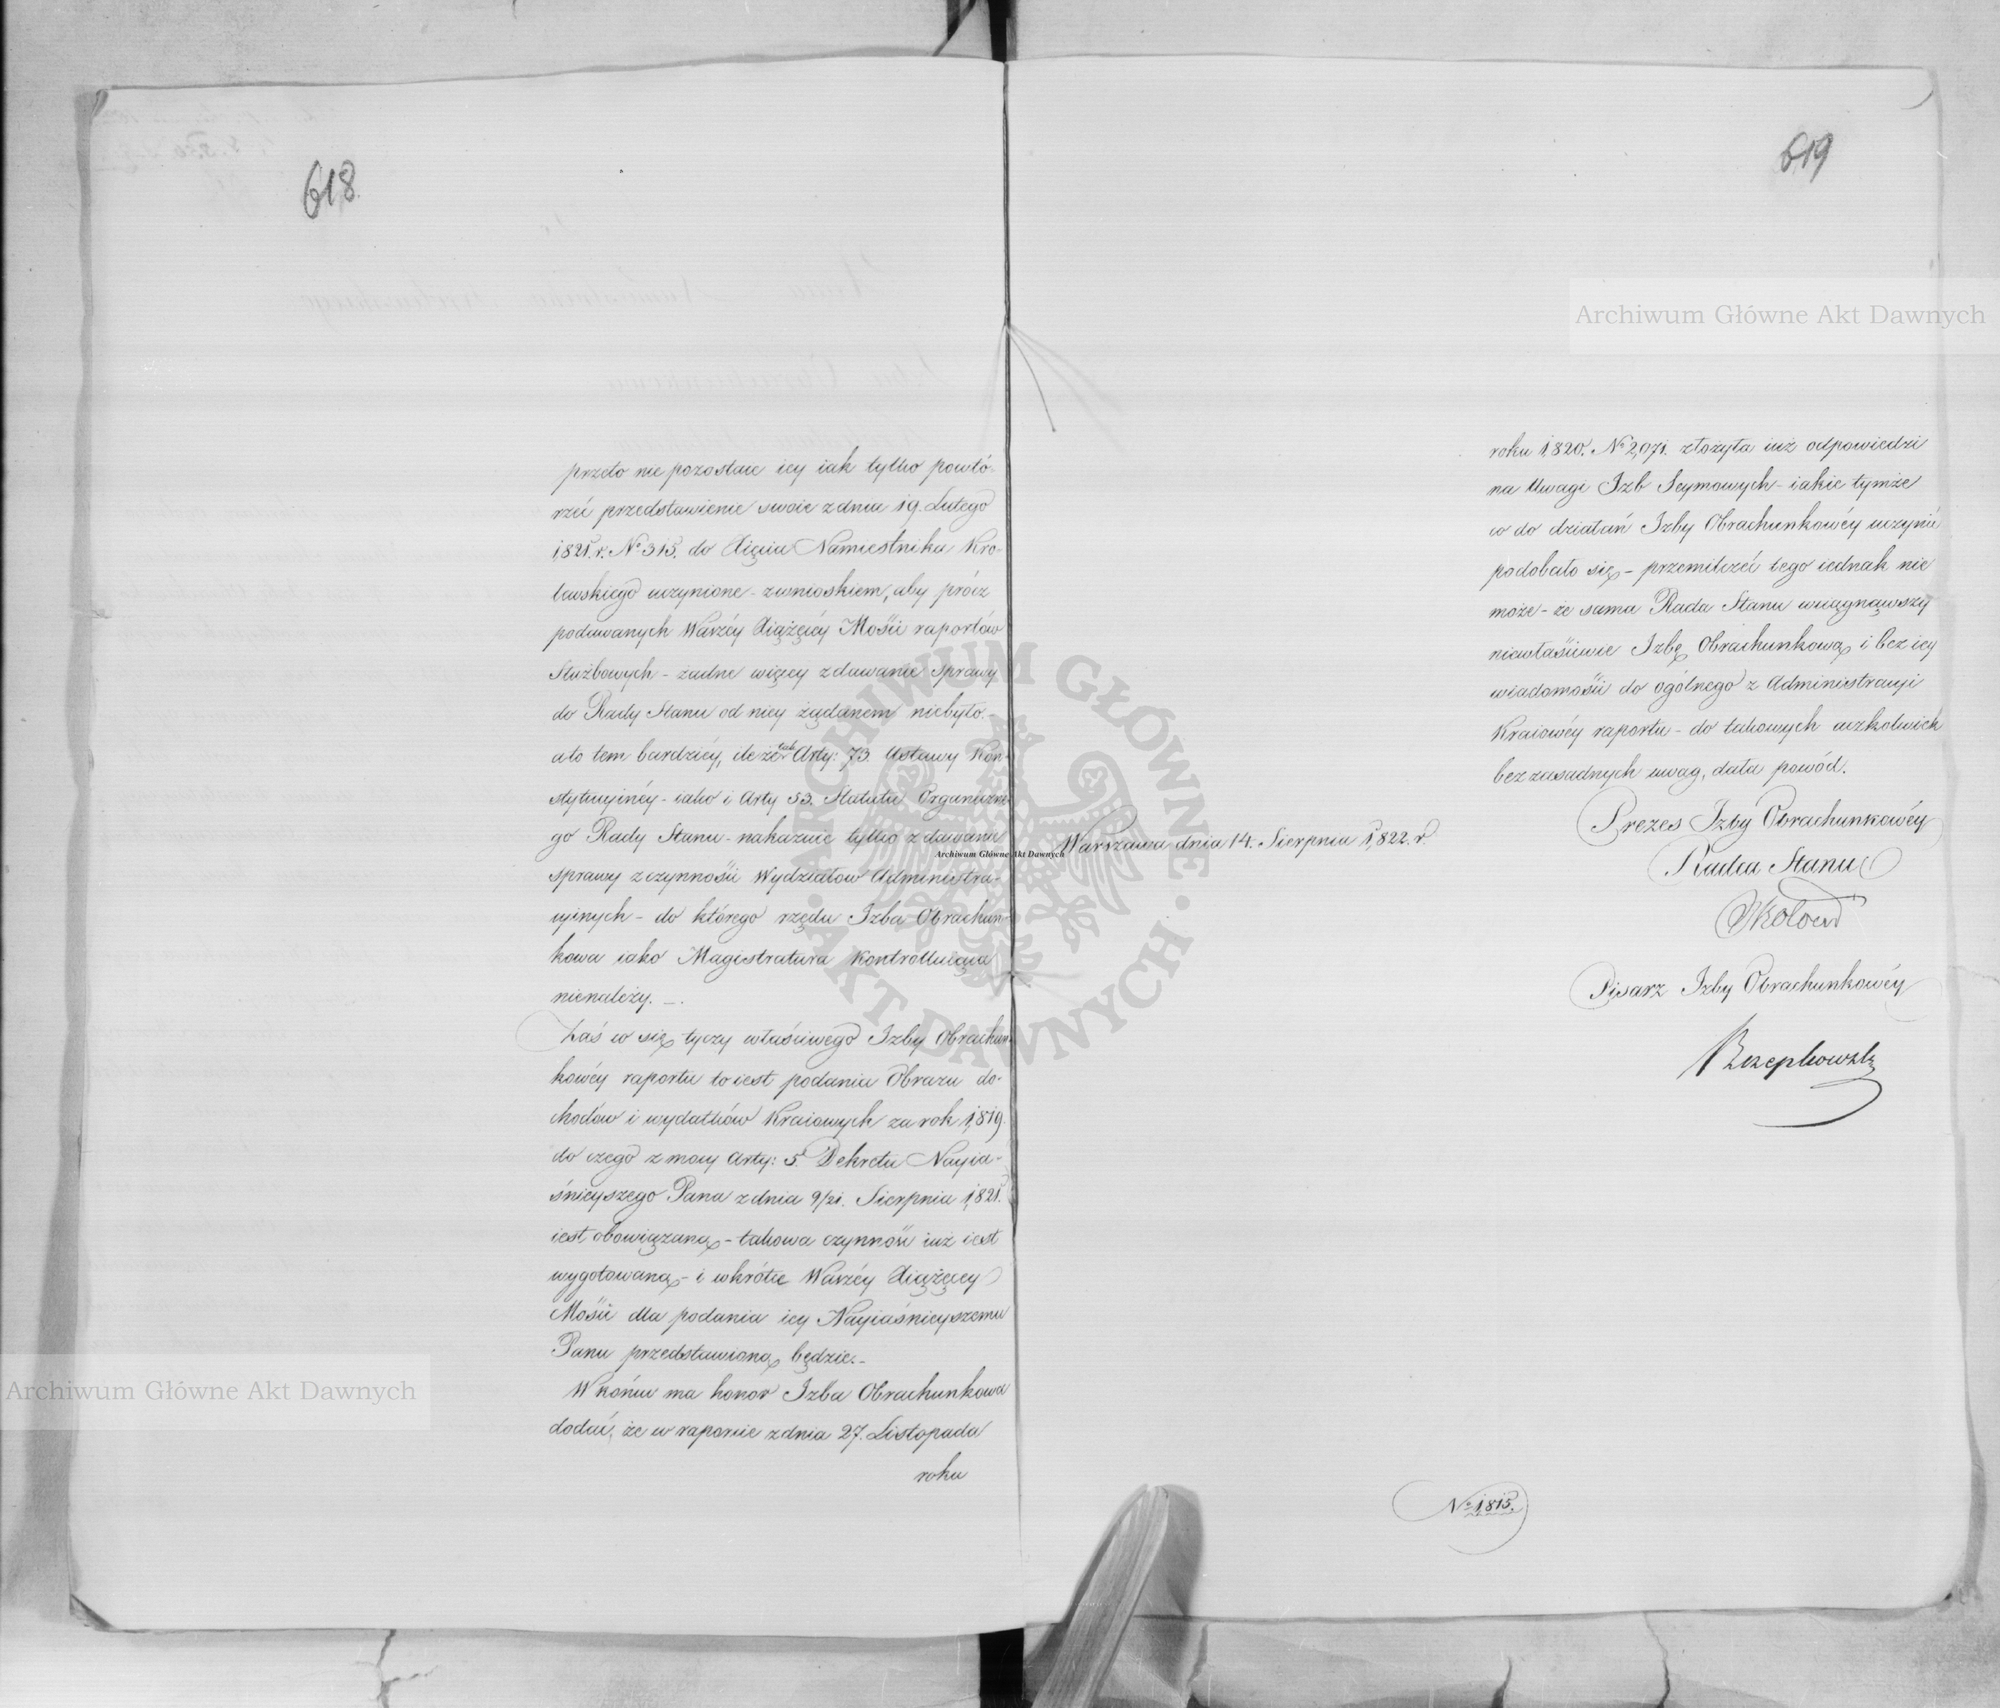 618.
przeto nie pozostaie iey iak tylko powtó-
rzéć przedstawienie swoie z dnia 19. Lutego
1,821. r. No 315. do Xięcia Namiestnika Kró-
lewskiego uczynione - z wnioskiem, aby prócz
podawanych Waszéy Xiążęcéy Mości raportów
Służbowych - żadne więcey zdawanie sprawy
do Rady Stanu od niey żądanem niebyło. -
a to tem bardziéy, ile że tak Arty: 73. Ustawy Kon-
stytucyinéy - iako i Arty 53. Statutu Organiczne-
go Rady Stanu - nakazuie tylko zdawanie
sprawy z czynności Wydziałow Administra-
cyinych - do którego rzędu Izba Obrachun-
kowa iako Magistratura Kontrolluiąca
nienależy. -.
Zaś co się tyczy właściwego Izby Obrachun-
kowéy raportu to iest podania Obrazu do-
chodów i wydatków Kraiowych za rok 1,819.
do czego z mocy Arty: 5. Dekretu Nayia-
śnieyszego Pana z dnia 9/21. Sierpnia 1,821.
iest obowiązaną - takowa czynność iuż iest
wygotowaną - i wkrótce Waszéy Xiążęcey
Mości dla podania iey Nayiaśnieyszemu
Panu przedstawioną będzie. -
W końcu ma honor Izba Obrachunkowa
dodać, że w raporcie z dnia 27. Listopada
roku
619
roku 1,820. No 2,071. złożyła iuż odpowiedzi
na Uwagi Izb Seymowych - iakie tymże
co do działań Izby Obrachunkowéy uczynić
podobało się - przemilczéć tego iednak nie
może - że sama Rada Stanu wciągnąwszy
niewłaściwie Izbę Obrachunkową i bez iey
wiadomości do ogólnego z Administracyi
Kraiowéy raportu - do takowych aczkolwiek
bezzasadnych uwag, dała powód.
Prezes Izby Obrachunkowéy
Radca Stanu
Warszawa dnia 14. Sierpnia 1,822. r.
Pisarz Izby Obrachunkowéy
No 1,815.
Archiwum Główne Akt Dawnych
Archiwum Główne Akt Dawnych
Archiwum Główne Akt Dawnych
ARCHIWUM GŁÓWNE · AKT DAWNYCH ·